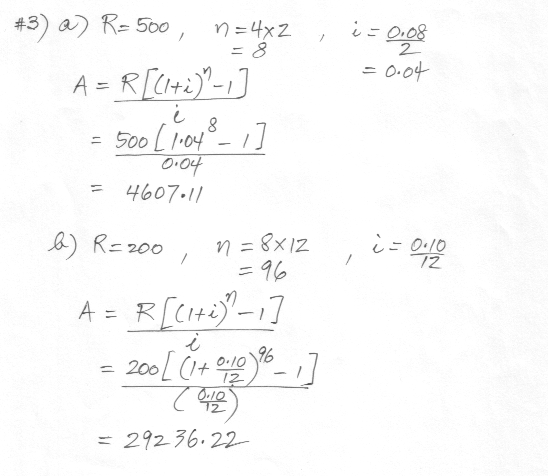 #3) a) R=500, n=4x2, i=0.08/2
=8 =0.04
A = R[(1+i)ⁿ-1]/i
= 500[1.04⁸-1]/0.04
= 4607.11
b) R=200, n=8x12, i=0.10/12
=96
A = R[(1+i)ⁿ-1]/i
= 200[(1+0.10/12)⁹⁶-1]/(0.10/12)
= 29236.22